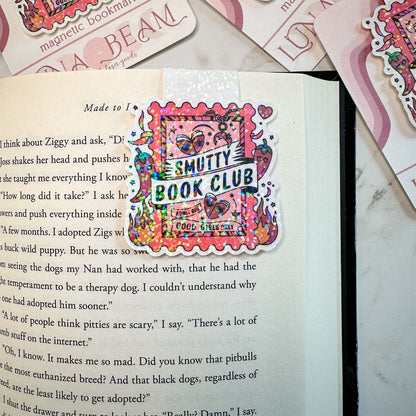 magnetic bookmark
LUNA BEAM
magnetic
LUNA
Made to
SMUTTY
BOOK CLUB
ADMIT ONE
COOL GIRLS ONLY
I think about Ziggy and ask, "Di
Joss shakes her head and pushes h
t taught me everything I know
"How long did it take?" I ask he
wers and push everything inside
"A few months. I adopted Zigs wh
s buck wild puppy. But he was so sw
om seeing the dogs my Nan had worked with, that he had the
ght temperament to be a therapy dog. I couldn't understand why
o one had adopted him sooner."
"A lot of people think pitties are scary," I say. "There's a lot of
umb stuff on the internet."
"Oh, I know. It makes me so mad. Did you know that pitbulls
e the most euthanized breed? And that black dogs, regardless of
eed, are the least likely to get adopted?"
I shut the drawer and turn to look at her. "Really? Damn," I say.